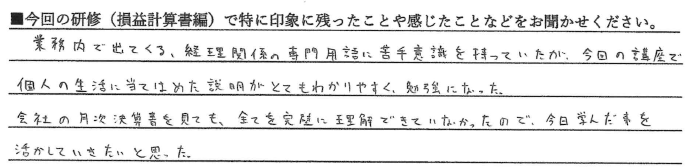 ■今回の研修（損益計算書編）で特に印象に残ったことや感じたことなどをお聞かせください。
業務内で出てくる、経理関係の専門用語に苦手意識を持っていたが、今回の講座で
個人の生活に当てはめた説明がとてもわかりやすく、勉強になった。
会社の月次決算書を見ても、全てを完璧に理解できていなかったので、今日学んだ事を
活かしていきたいと思った。